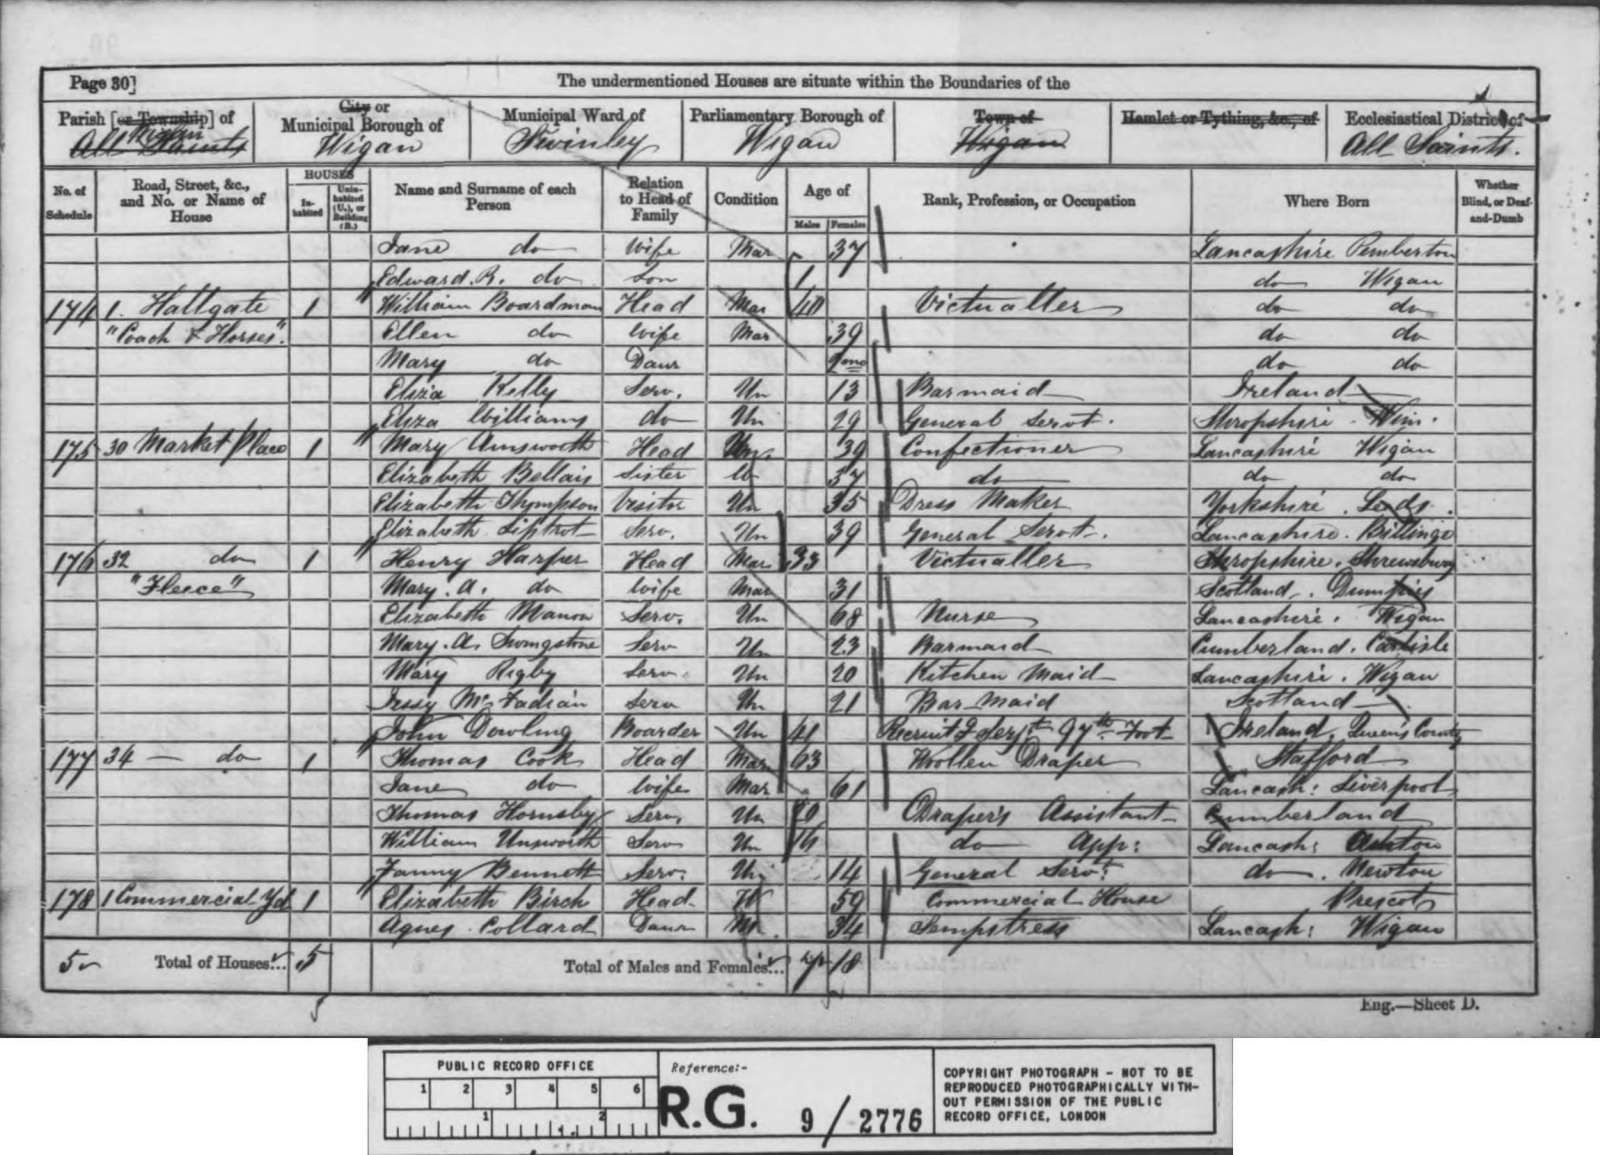 Page 30]
The undermentioned Houses are situate within the Boundaries of the
Parish [or Township] of Wigan All Saints
City or Municipal Borough of Wigan
Municipal Ward of Swinley
Parliamentary Borough of Wigan
Town of Wigan
Hamlet or Tything, &c., of
Ecclesiastical District of All Saints.
No. of Schedule
Road, Street, &c., and No. or Name of House
HOUSES
Inhabited
Uninhabited (U.), or Building (B.)
Name and Surname of each Person
Relation to Head of Family
Condition
Age of
Males
Females
Rank, Profession, or Occupation
Where Born
Whether Blind, or Deaf-and-Dumb
Jane do Wife Mar 37 Lancashire Pemberton
Edward R. do Son 1 do Wigan
174 1. Hallgate 1 William Boardman Head Mar 40 Victualler do do
"Coach & Horses". Ellen do Wife Mar 39 do do
Mary do Daur 9mo do do
Eliza Kelly Serv. Un 13 Barmaid Ireland
Eliza Williams do Un 29 General Servt. Shropshire Wem.
175 30 Market Place 1 Mary Ainsworth Head Un. 39 Confectioner Lancashire Wigan
Elizabeth Bellais Sister W 37 do do do
Elizabeth Thympson Visitor Un 35 Dress Maker Yorkshire. Leeds.
Elizabeth Liptrot Serv. Un 39 General Servt. Lancashire. Billinge
176 32 do 1 Henry Harper Head Mar 33 Victualler Shropshire. Shrewsbury
"Fleece" Mary. A. do Wife Mar 31 Scotland. Dumfries
Elizabeth Manon Serv. Un 68 Nurse Lancashire. Wigan
Mary. A. Serv Un 23 Barmaid Cumberland. Carlisle
Mary Rigby Serv. Un 20 Kitchen Maid Lancashire. Wigan
Jessy Mc Fadian Serv Un 21 Bar Maid Scotland
John Dowling Boarder Un 41 Recruitg Serjt. 97th Foot Ireland, Queen's County
177 34 — do 1 Thomas Cook Head Mar 63 Woollen Draper Stafford
Jane do Wife Mar 61 Lancash: Liverpool
Thomas Hornsby Serv. Un 20 Draper's Assistant Cumberland
William Unsworth Serv Un 16 do App: Lancash: Ashton
Fanny Bennett Serv. Un 14 General Serv: do. Newton
178 1 Commercial Yd 1 Elizabeth Birch Head W 59 Commercial House Prescot
Agnes Collard Daur 34 Sempstress Lancash: Wigan
5 Total of Houses... 5 Total of Males and Females... 7 18
Eng.—Sheet D.
PUBLIC RECORD OFFICE
1 2 3 4 5 6
1 2
Reference:-
R.G. 9/2776
COPYRIGHT PHOTOGRAPH - NOT TO BE
REPRODUCED PHOTOGRAPHICALLY WITH-
OUT PERMISSION OF THE PUBLIC
RECORD OFFICE, LONDON